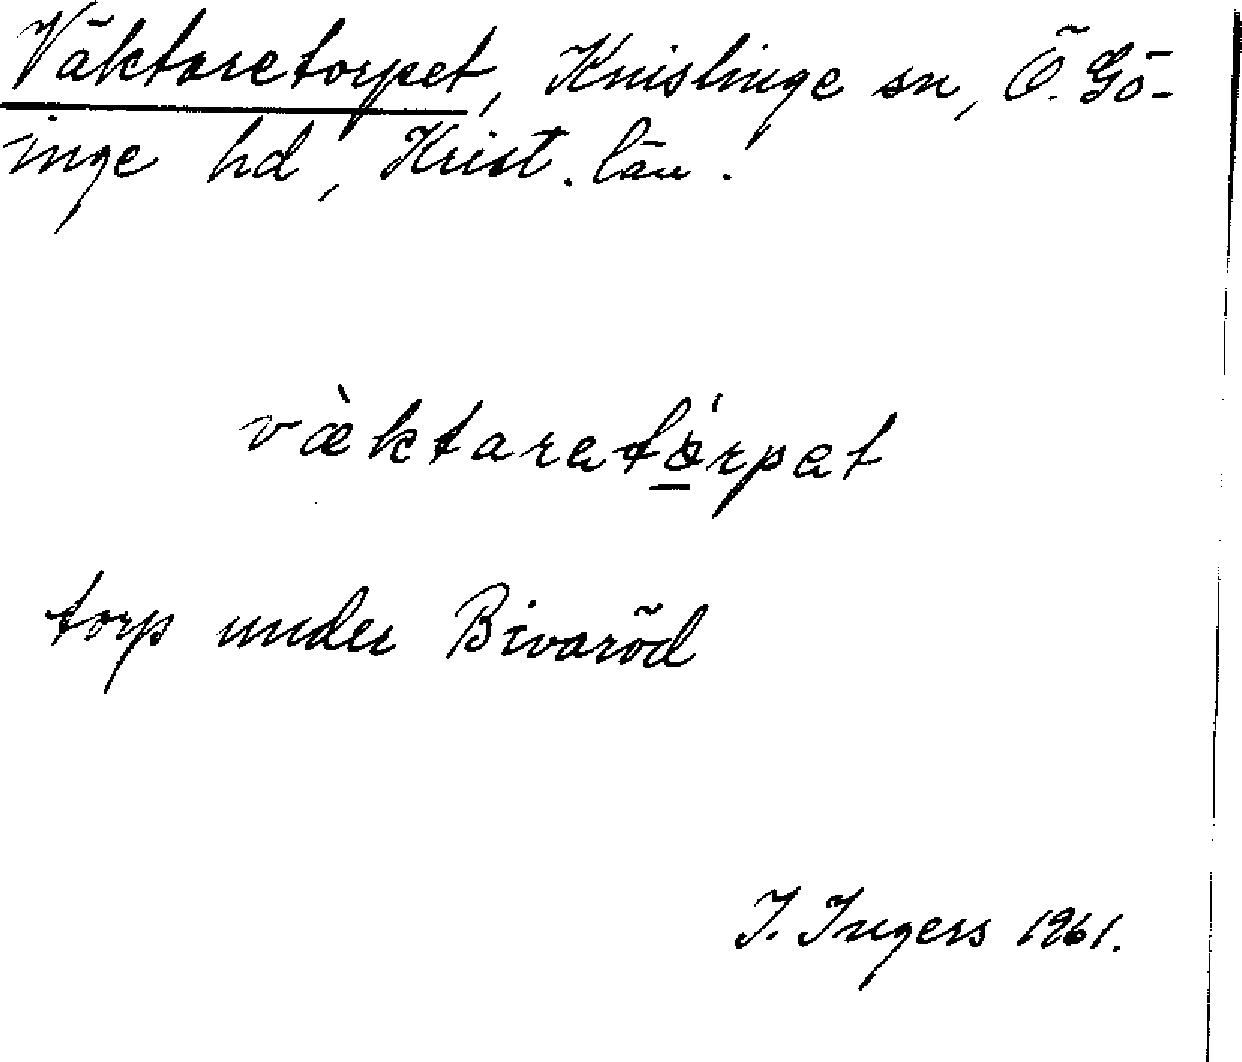 Väktaretorpet, Knislinge sn, Ö. Gö-
inge hd, Krist. län.
væ̀ktaretó̱rpet
torp under Bivaröd
I. Ingers 1961.